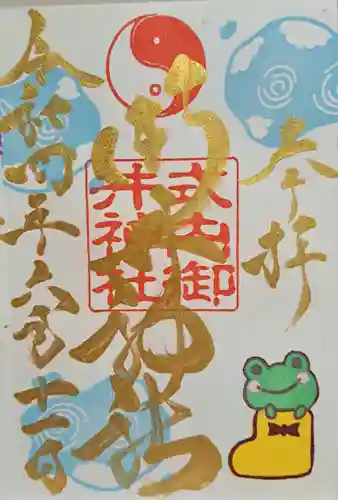 奉拝
式内御
井神社
御井神社
令和四年六月十一日